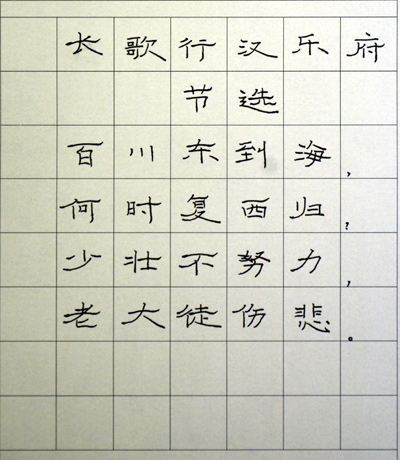 长歌行汉乐府
节选
百川东到海，
何时复西归？
少壮不努力，
老大徒伤悲。